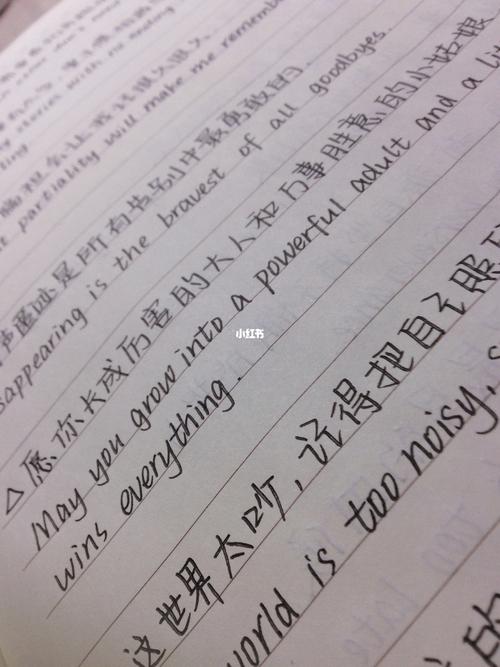 stories with no ending
偏袒会让我记很久很久
partiality will make me remember
声匿迹是所有告别中最勇敢的.
sappearing is the bravest of all goodbyes.
△愿你长成厉害的大人和万事胜意的小姑娘
May you grow into a powerful adult and a li
wins everything.
小红书
这世界太吵,记得把自己照
world is too noisy,
的